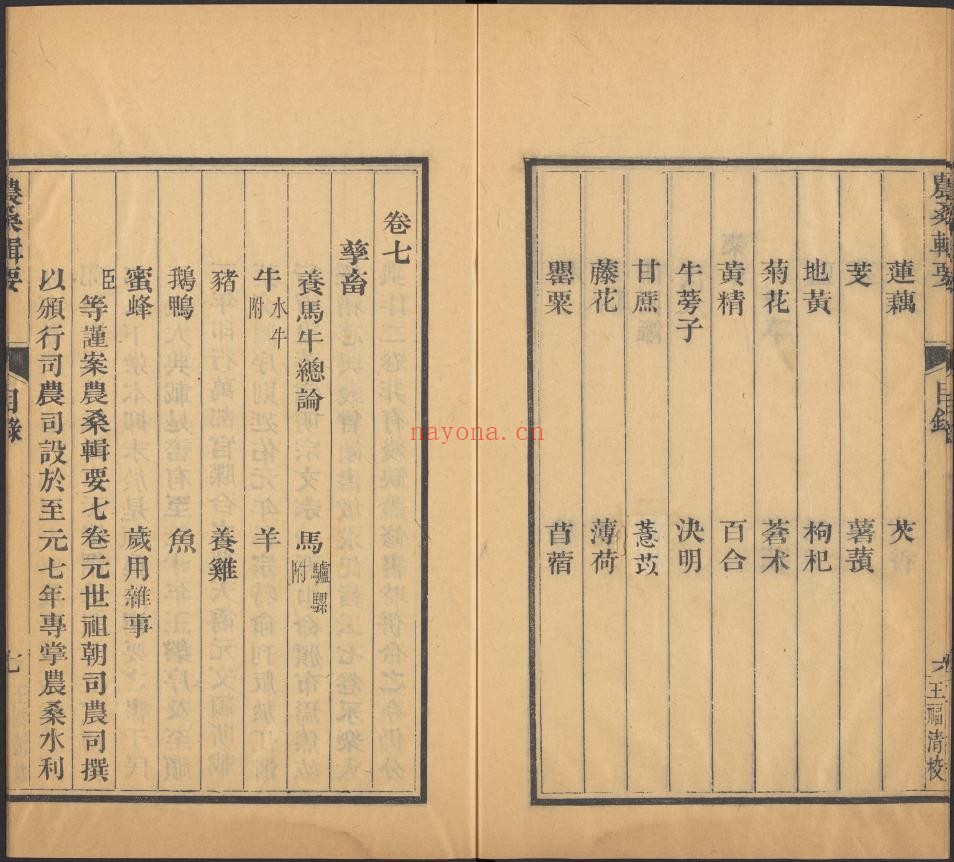 農桑輯要 目錄 六 王福清校
蓮藕 芡
芰 薯蕷
地黃 枸杞
菊花 蒼术
黃精 百合
牛蒡子 決明
甘蔗 薏苡
藤花 薄荷
罌粟 苜蓿
卷七
孳畜
養馬牛總論 馬驢騾附
牛水牛附 羊
豬 養雞
鵝鴨 魚
蜜蜂 歲用雜事
臣等謹案農桑輯要七卷元世祖朝司農司撰
以頒行司農司設於至元七年專掌農桑水利
農桑輯要 目錄 七
nayona.cn